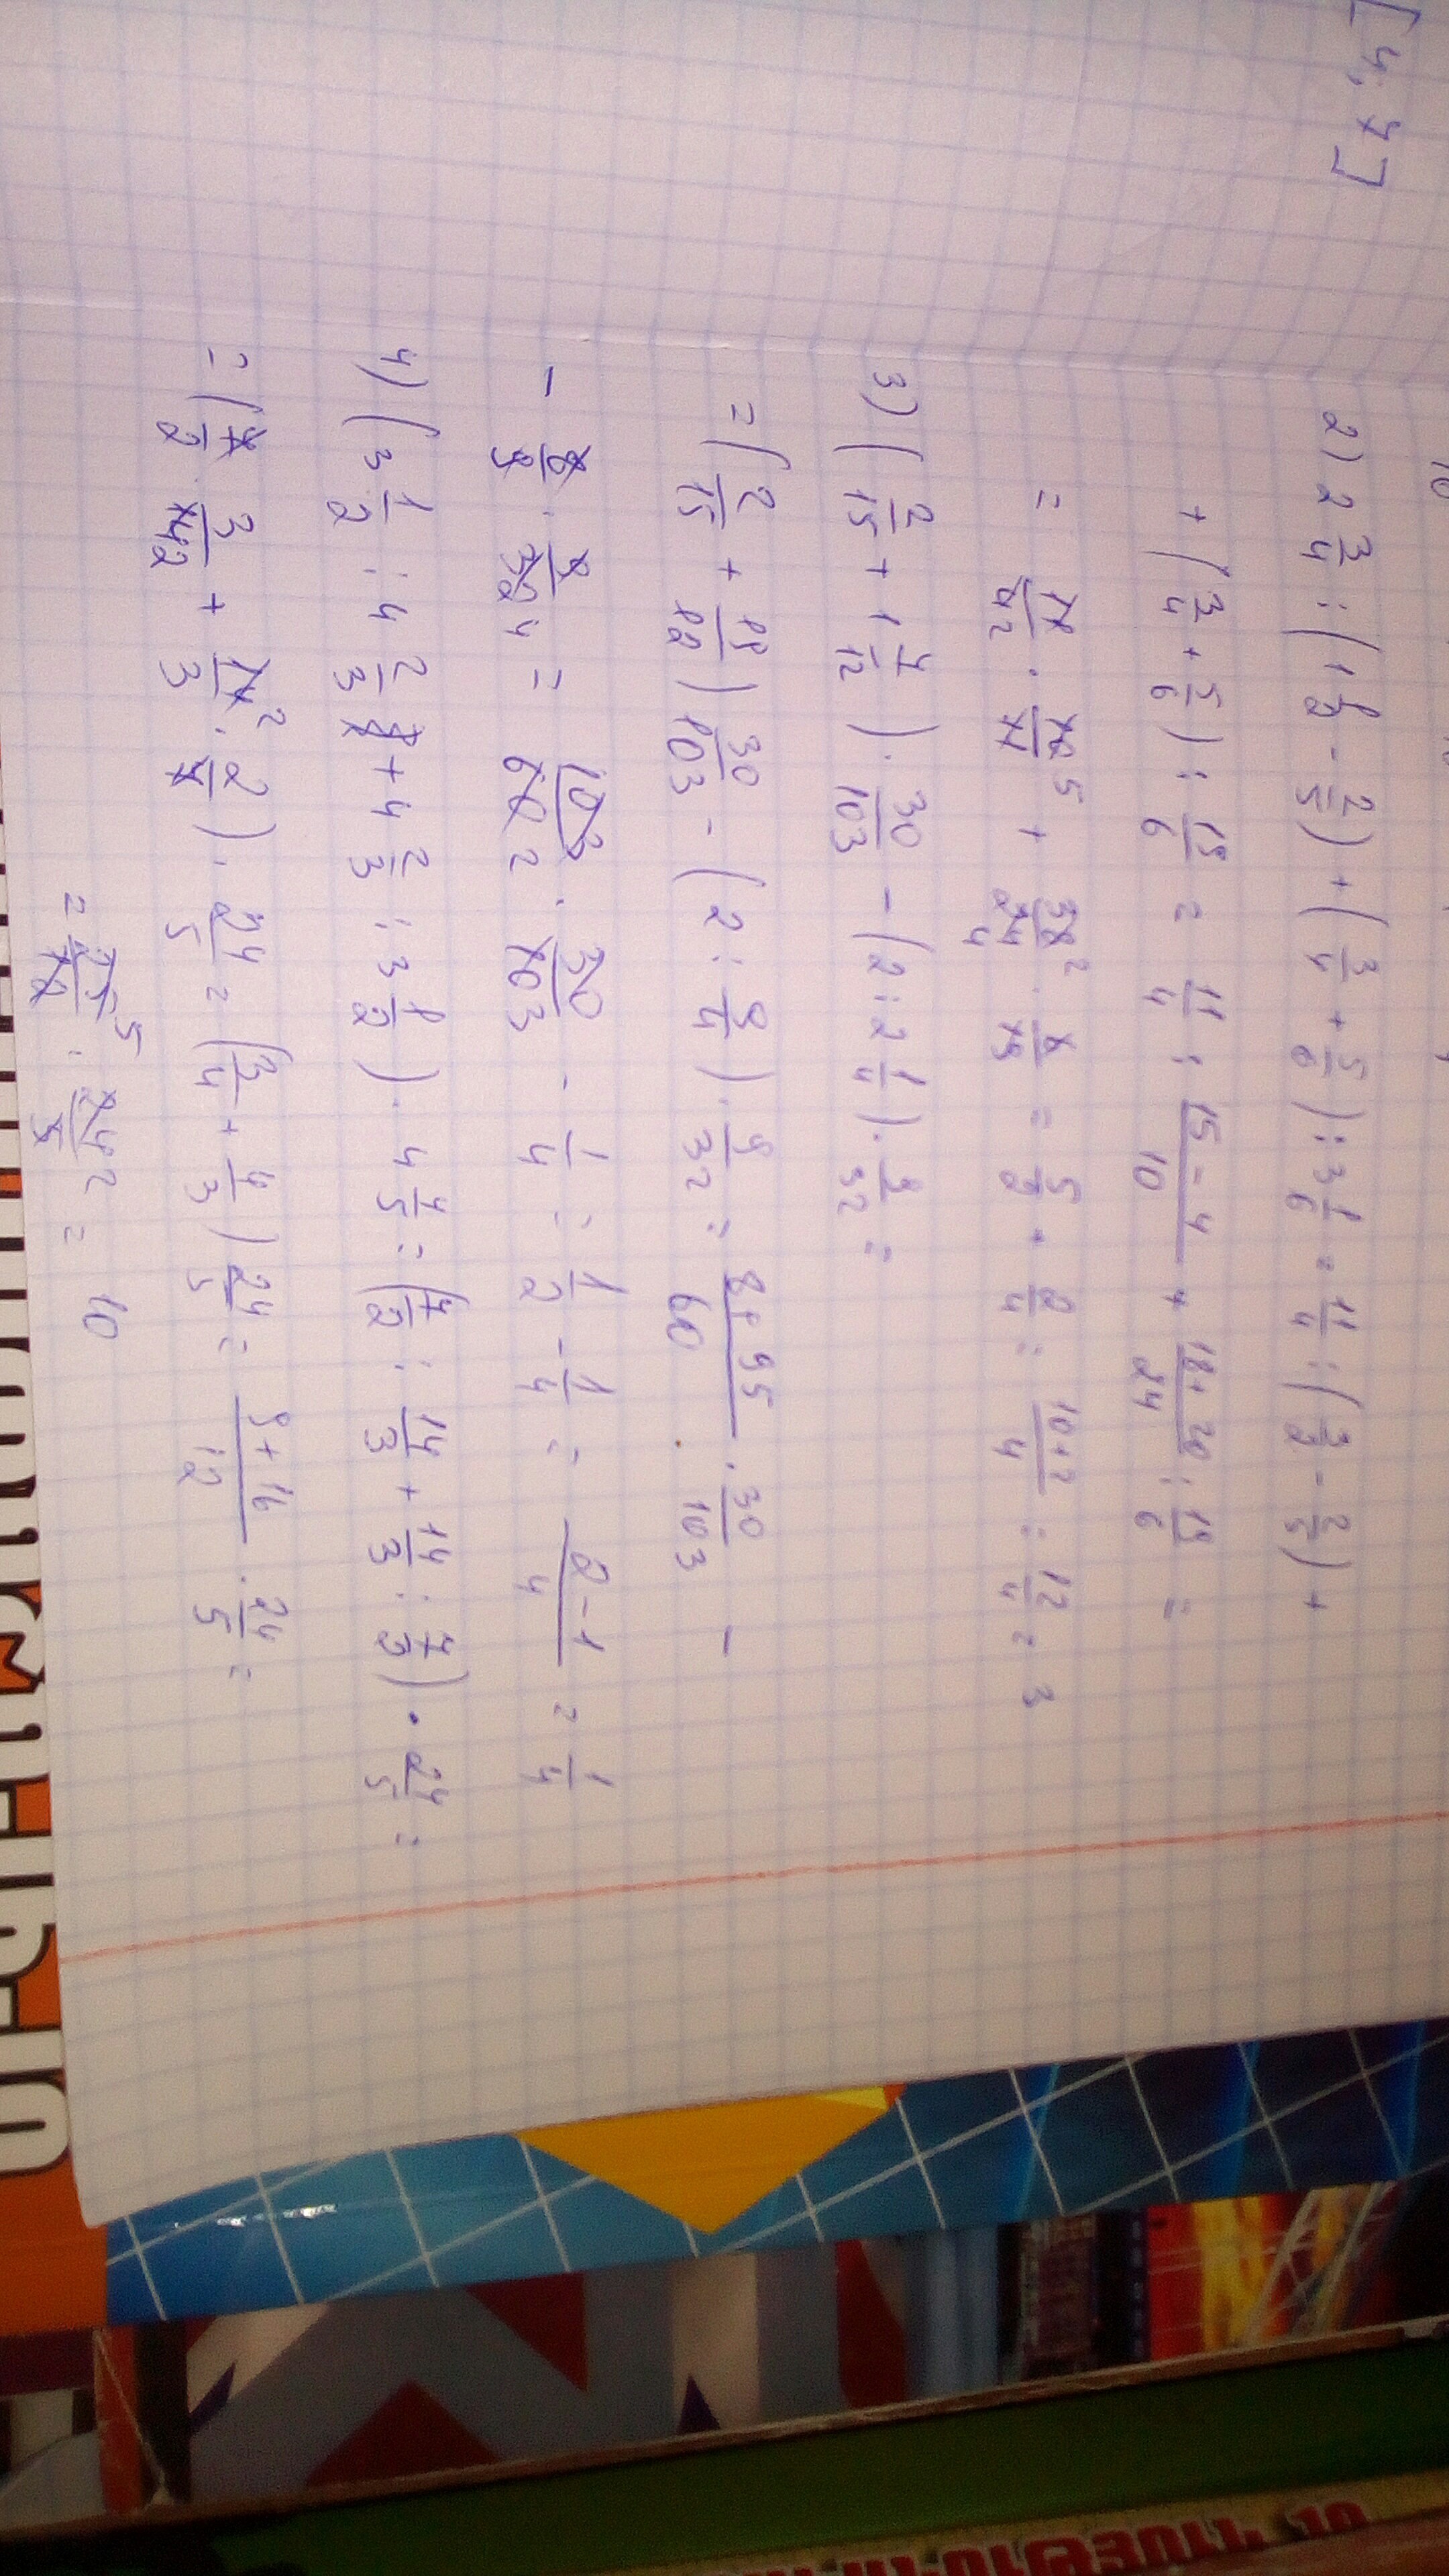 [4; 7]
10
2) 2 3/4 : (1 1/2 - 2/5) + (3/4 + 5/6) : 3 1/6 = 11/4 : (3/2 - 2/5) +
+ (3/4 + 5/6) : 19/6 = 11/4 : (15-4)/10 + (18+20)/24 : 19/6 =
= 11/4 2 · 10 5/11 + 38 2/24 4 · 6/19 = 5/2 + 2/4 = (10+2)/4 = 12/4 = 3
3) (2/15 + 1 7/12) · 30/103 - (2 : 2 1/4) · 9/32 =
= (2/15 + 19/12) 30/103 - (2 : 9/4) · 9/32 = (8+95)/60 · 30/103 -
- 8/9 · 9/32 4 = 103/60 2 · 30/103 - 1/4 = 1/2 - 1/4 = (2-1)/4 = 1/4
4) (3 1/2 : 4 2/3 + 4 2/3 : 3 1/2) · 4 4/5 = (7/2 : 14/3 + 14/3 : 7/2) · 24/5 =
= (7/2 · 3/14 2 + 14 2/3 · 2/7) · 24/5 = (3/4 + 4/3) 24/5 = (9+16)/12 · 24/5 =
= 25 5/12 · 24 2/5 = 10